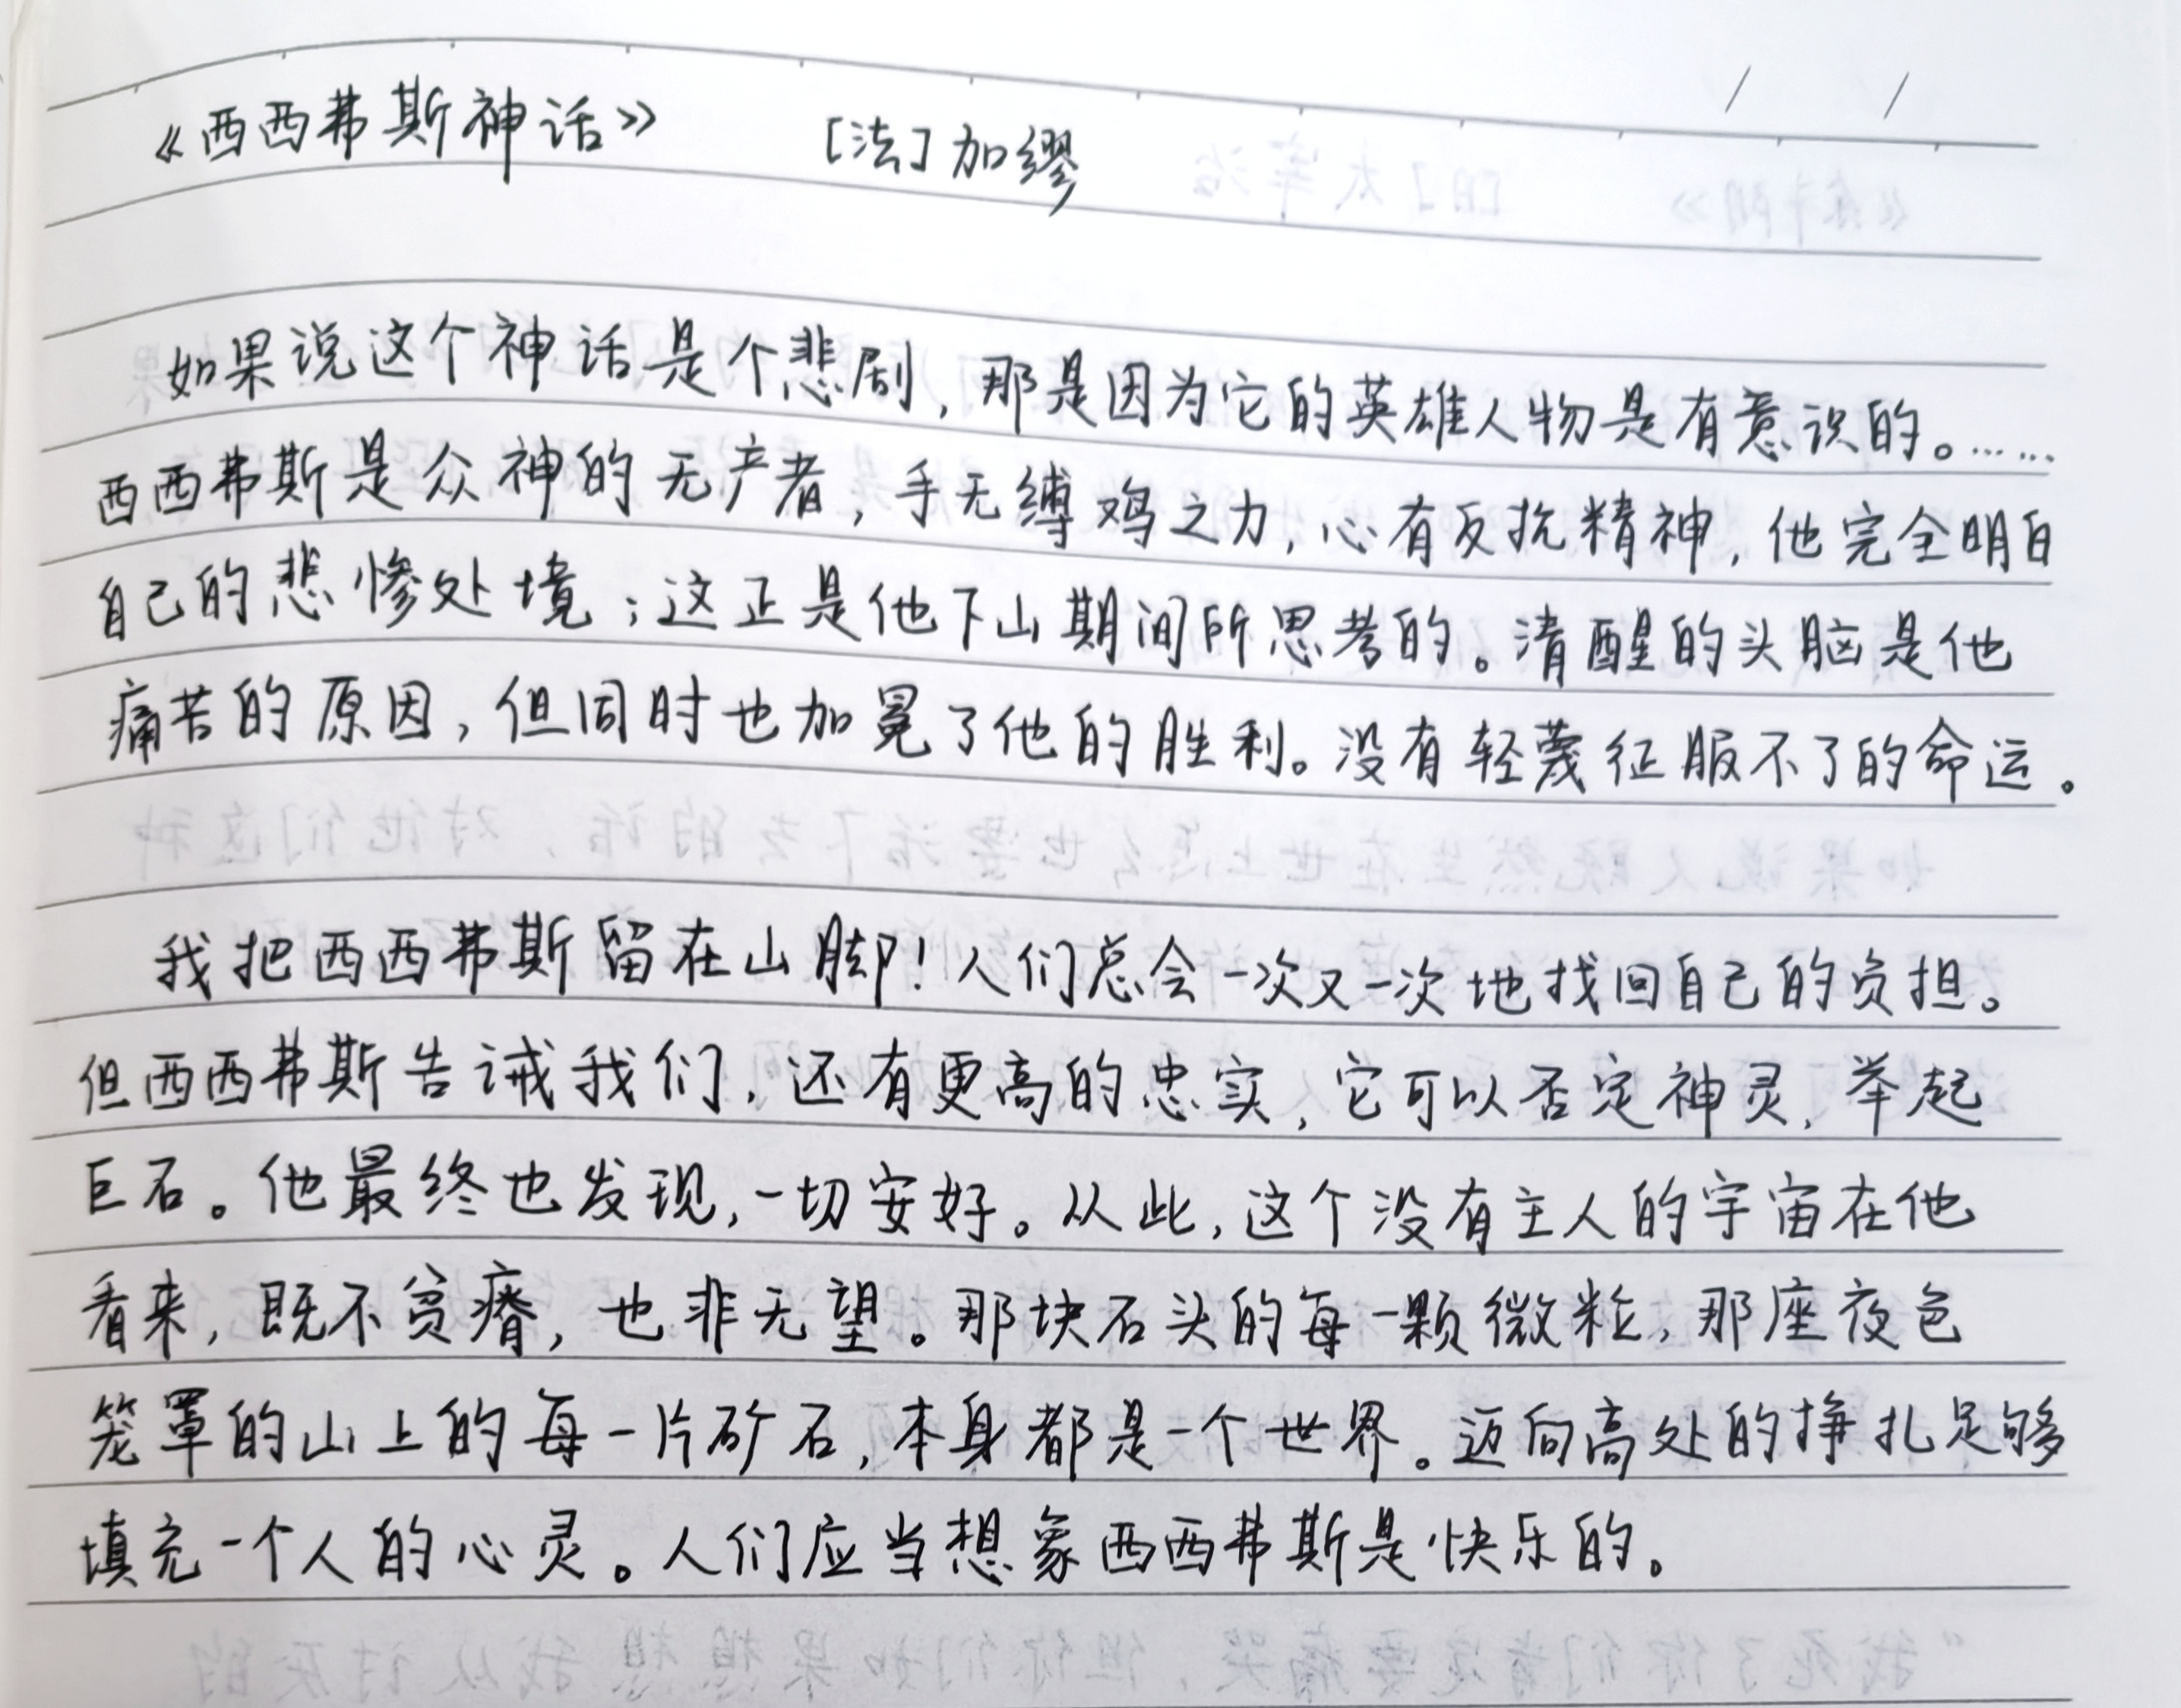 《西西弗斯神话》 [法]加缪
如果说这个神话是个悲剧，那是因为它的英雄人物是有意识的。……
西西弗斯是众神的无产者，手无缚鸡之力，心有反抗精神，他完全明白
自己的悲惨处境；这正是他下山期间所思考的。清醒的头脑是他
痛苦的原因，但同时也加冕了他的胜利。没有轻蔑征服不了的命运。
我把西西弗斯留在山脚！人们总会一次又一次地找回自己的负担。
但西西弗斯告诫我们，还有更高的忠实，它可以否定神灵，举起
巨石。他最终也发现，一切安好。从此，这个没有主人的宇宙在他
看来，既不贫瘠，也非无望。那块石头的每一颗微粒，那座夜色
笼罩的山上的每一片矿石，本身都是一个世界。迈向高处的挣扎足够
填充一个人的心灵。人们应当想象西西弗斯是快乐的。